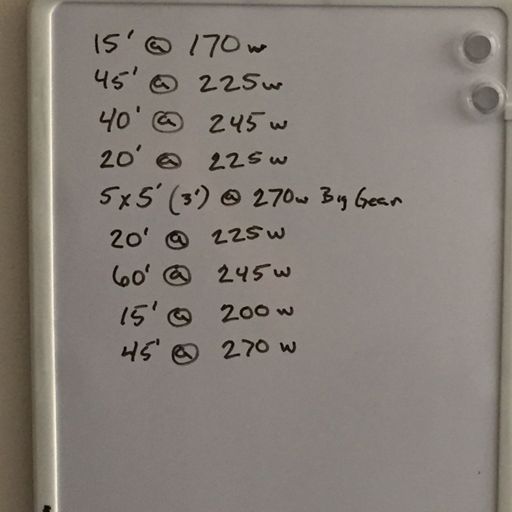 15' @ 170w
45' @ 225w
40' @ 245w
20' @ 225w
5x5' (3') @ 270w Big Gear
20' @ 225w
60' @ 245w
15' @ 200w
45' @ 270w